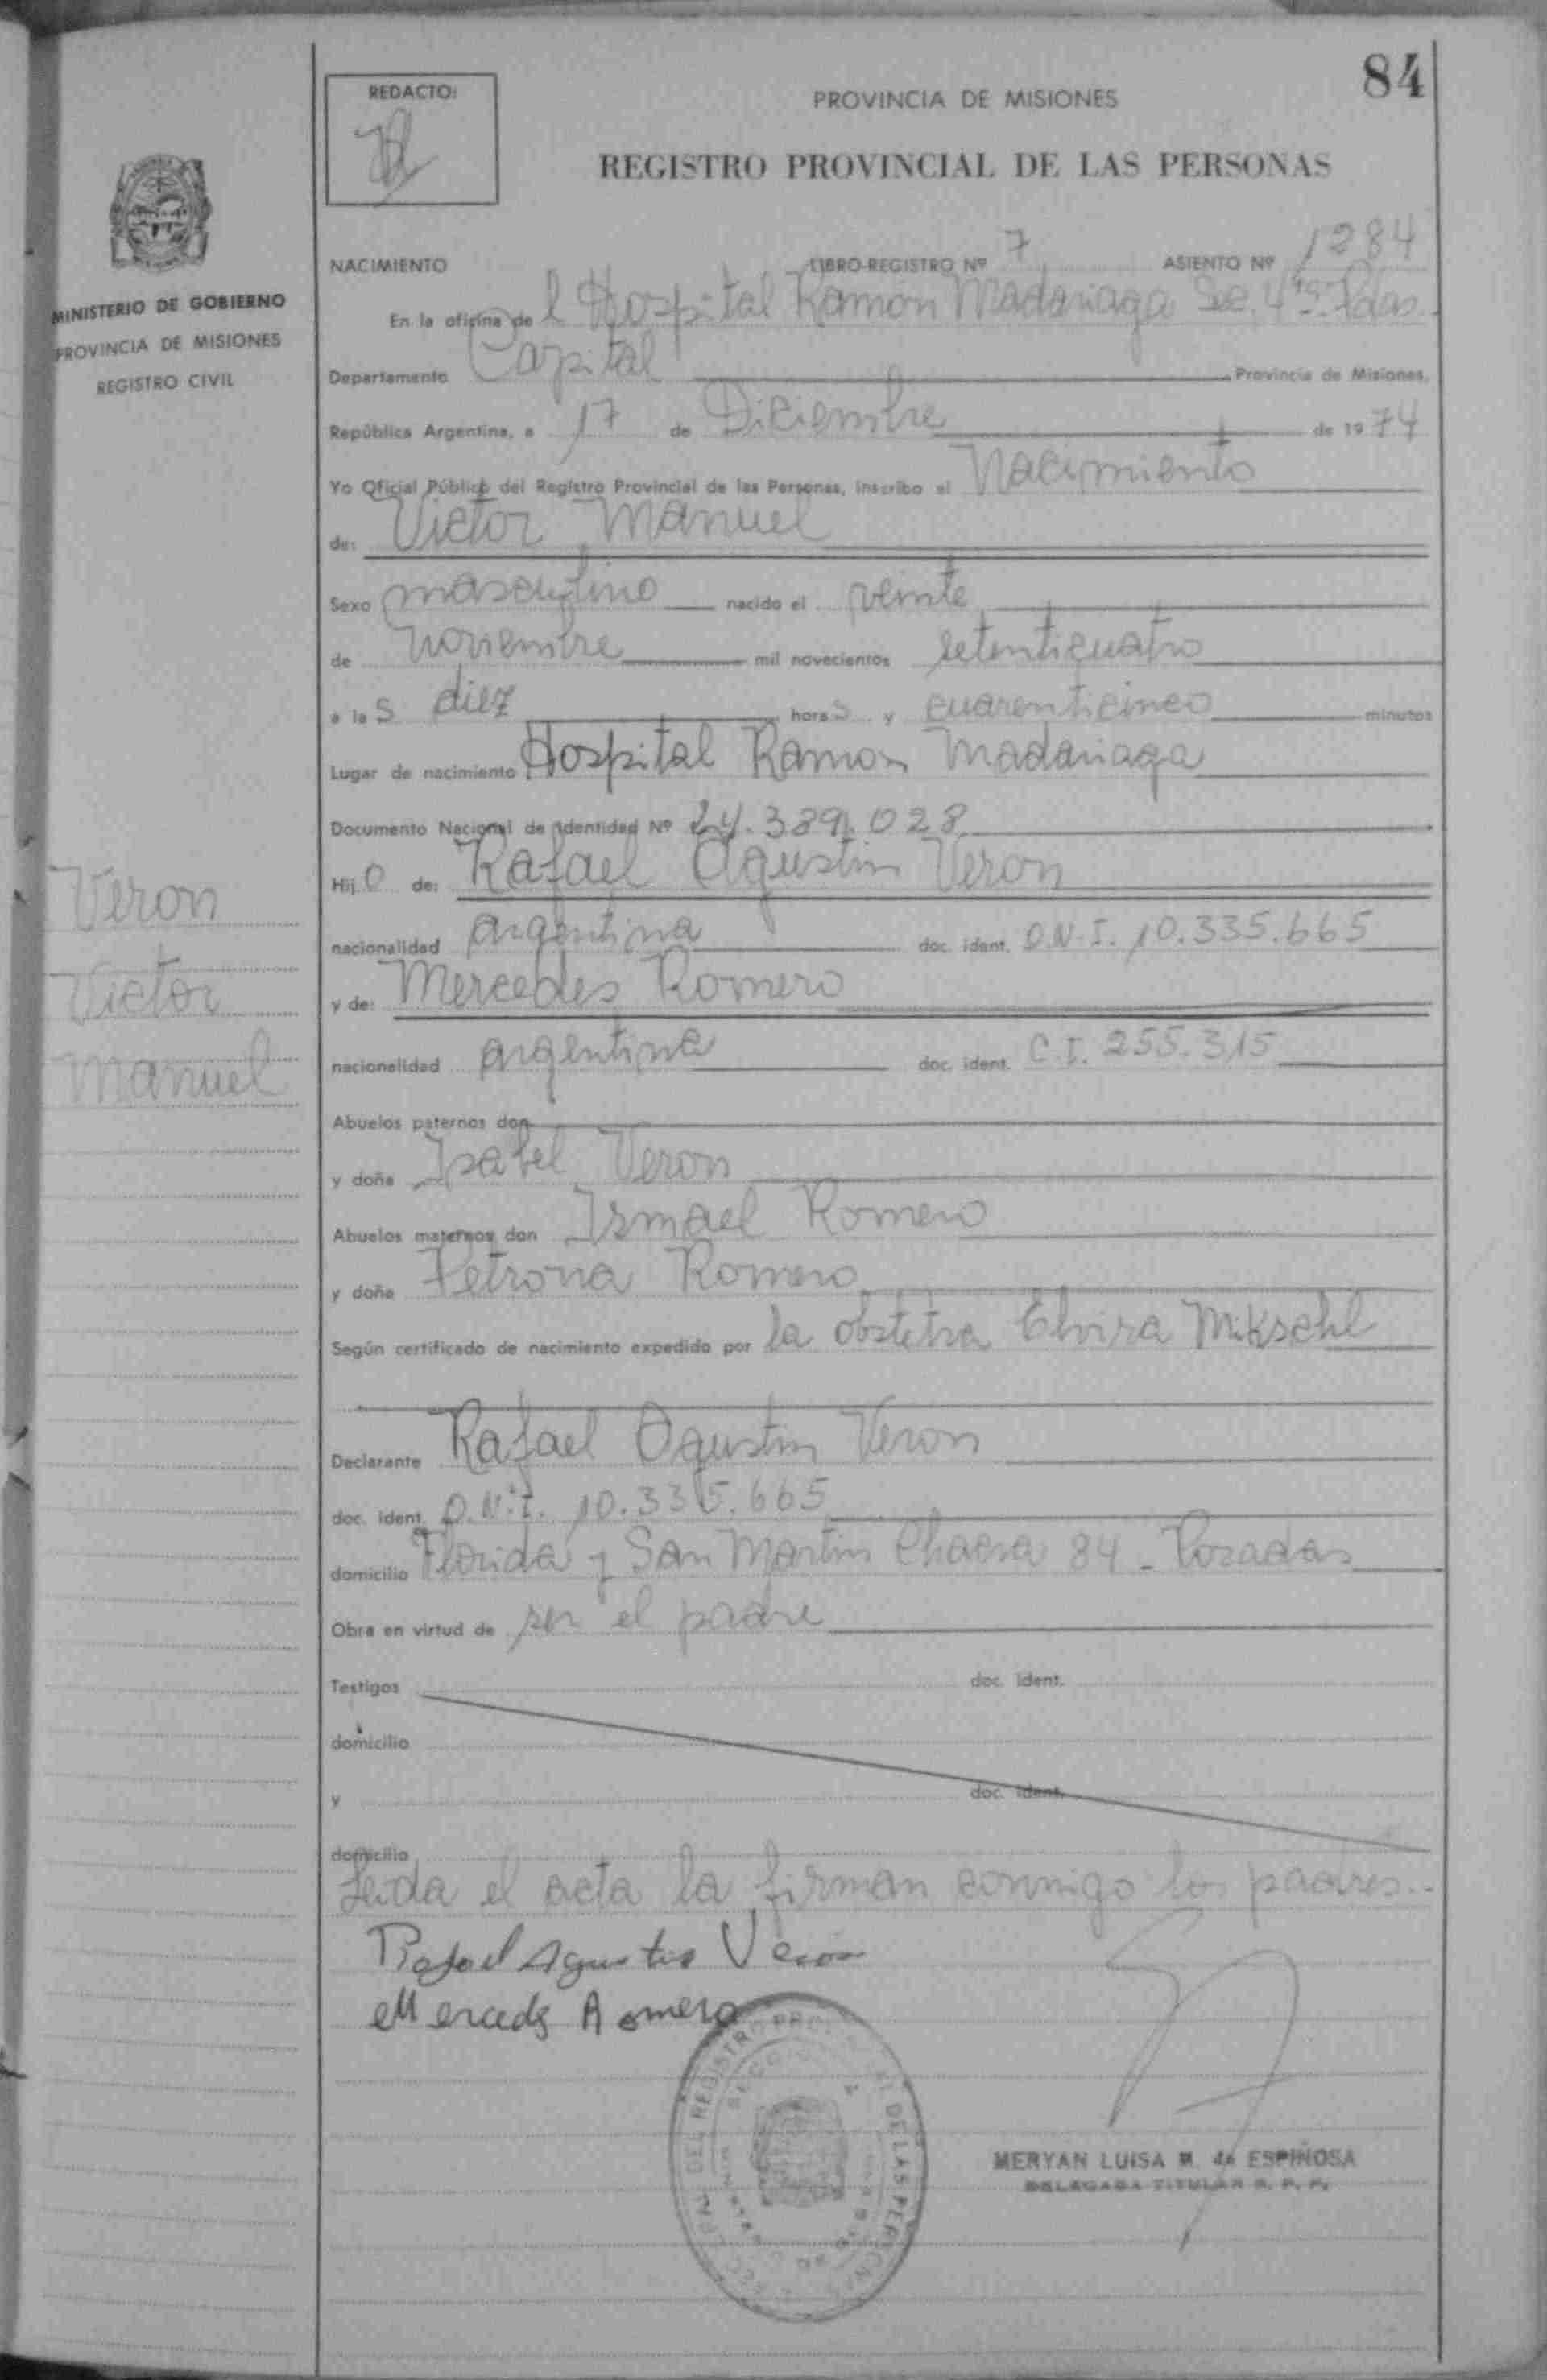 84
REDACTO:
PROVINCIA DE MISIONES
REGISTRO PROVINCIAL DE LAS PERSONAS
MINISTERIO DE GOBIERNO
PROVINCIA DE MISIONES
REGISTRO CIVIL
NACIMIENTO LIBRO-REGISTRO Nº 7 ASIENTO Nº 1284
En la oficina de l Hospital Ramón Madariaga Sec. 4ta Pdas.
Departamento Capital Provincia de Misiones,
República Argentina, a 17 de Diciembre de 1974
Yo Oficial Público del Registro Provincial de las Personas, inscribo el Nacimiento
de: Victor Manuel
Sexo masculino nacido el veinte
de noviembre mil novecientos setenticuatro
a las diez horas y cuarenticinco minutos
Lugar de nacimiento Hospital Ramon Madariaga
Documento Nacional de Identidad Nº 24.389.028
Hijo de: Rafael Agustin Veron
nacionalidad argentina doc. ident. D.N.I. 10.335.665
y de: Mercedes Romero
nacionalidad argentina doc. ident. C.I. 255.315
Veron
Victor
Manuel
Abuelos paternos don
y doña Isabel Veron
Abuelos maternos don Ismael Romero
y doña Petrona Romero
Según certificado de nacimiento expedido por la obstetra Elvira Miksehl
Declarante Rafael Agustin Veron
doc. ident. D.N.I. 10.335.665
domicilio Florida y San Martin Chacra 84 - Posadas
Obra en virtud de ser el padre
Testigos doc. ident.
domicilio
y doc. ident.
domicilio
Leida el acta la firman conmigo los padres..
Rafael Agustin Veron
Mercedes Romero
DEL REGISTRO DE LAS PERSONAS
MERYAN LUISA M. de ESPINOSA
DELEGADA TITULAR R. P. P.